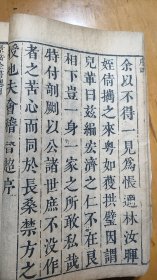 余以不得一見為悵適林汝暉
姪倩擕之來粵如獲拱璧因謂
兒輩曰茲編宏濟之仁不在良
相下豈身一家之所敢私哉
特付剞劂以公諸世庶不沒作
者之苦心而同於長桑禁方之
授也夫會稽魯超序